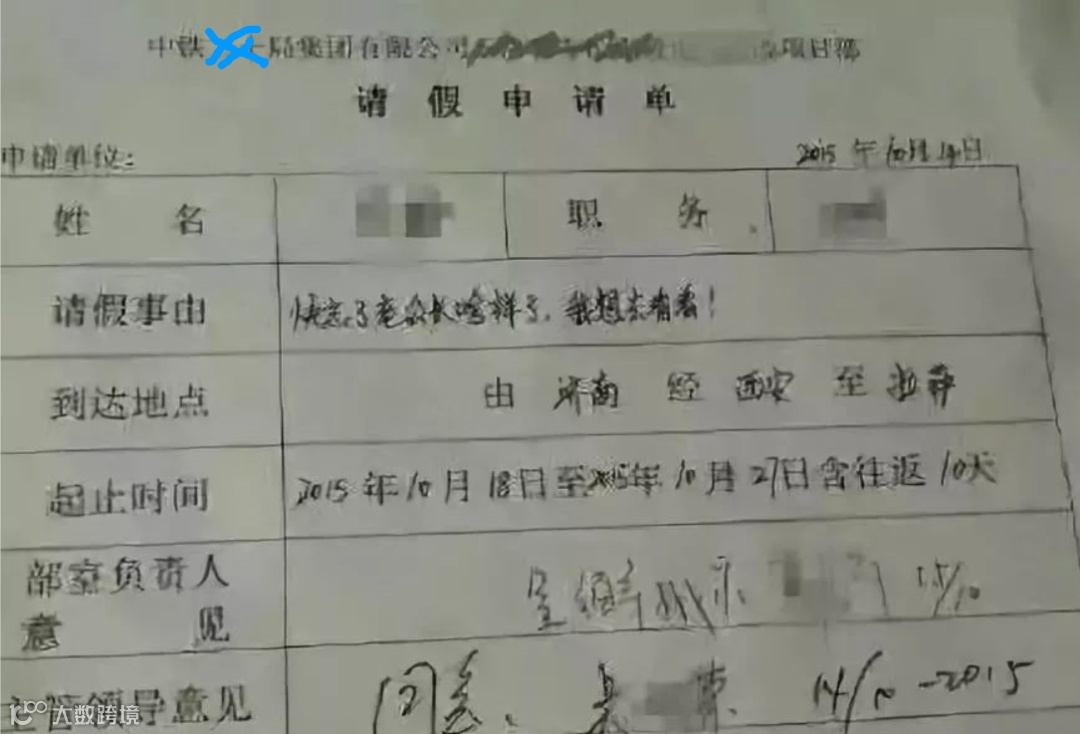 中铁 一局集团有限公司 项目部
请假申请单
申请单位: 2015年10月14日
姓名 职务
请假事由 快忘了老公长啥样了,我想去看看!
到达地点 由 济南 经 西安 至 拉萨
起止时间 2015年10月18日至2015年10月27日含往返10天
部室负责人
意见 呈领导批示 15/10
主管领导意见 同意. 14/10-2015
大数跨境